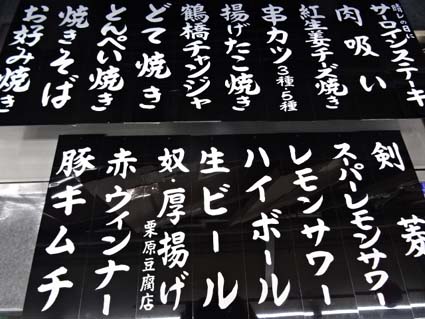 晴レの日ノ
サーロインステーキ
肉吸い
紅生姜チーズ焼き
串カツ 3種・5種
揚げたこ焼き
鶴橋チャンジャ
どて焼き
とんぺい焼き
焼きそば
お好み焼き
菱
剣
スーパーレモンサワー
レモンサワー
ハイボール
生ビール
奴・厚揚げ 栗原豆腐店
赤ウィンナー
豚キムチ